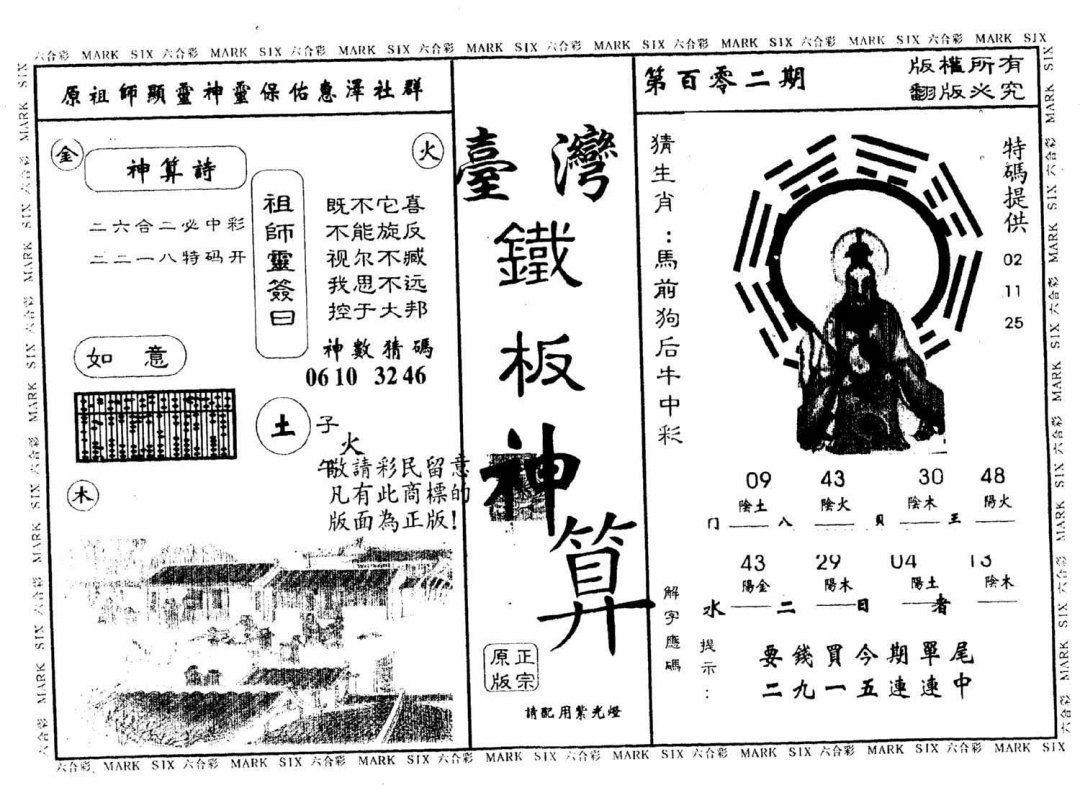 六合彩 MARK SIX 六合彩 MARK SIX 六合彩 MARK SIX 六合彩 MARK SIX 六合彩 MARK SIX 六合彩 MARK SIX 六合彩 MARK SIX 六合彩 MARK SIX
原祖師顯靈神靈保佑惠澤社群
金
火
神算詩
二六合二必中彩
二二一八特码开
祖師靈簽曰
既不它喜
不能旋反
视尔不臧
我思不远
控于大邦
神數猜碼
06 10 32 46
如意
土
子
火
午
敬請彩民留意
凡有此商標的
版面為正版!
木
臺灣
鐵
板
神
算
正宗
原版
請配用紫光燈
第百零二期
版權所有
翻版必究
猜生肖:馬前狗后牛中彩
特碼提供
02
11
25
09 43 30 48
陰土 陰火 陰木 陽火
门 八 贝 王
43 29 04 13
陽金 陽木 陽土 陰木
水 二 日 者
解字應碼
提示:
要錢買今期單尾
二九一五連連中
六合彩 MARK SIX 六合彩 MARK SIX 六合彩 MARK SIX 六合彩 MARK SIX 六合彩 MARK SIX 六合彩 MARK SIX 六合彩 MARK SIX 六合彩 MARK SIX